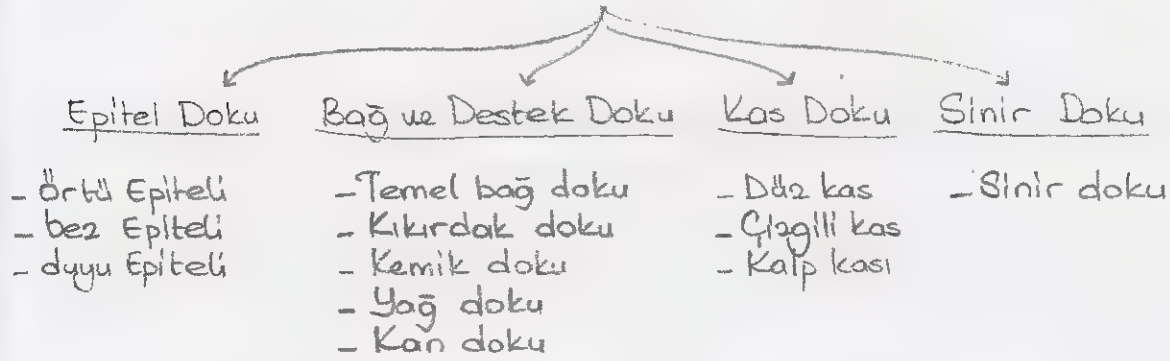 Epitel Doku
- Örtü Epiteli
- bez Epiteli
- duyu Epiteli
Bağ ve Destek Doku
- Temel bağ doku
- Kıkırdak doku
- Kemik doku
- Yağ doku
- Kan doku
Kas Doku
- Düz kas
- Çizgili kas
- Kalp kası
Sinir Doku
- Sinir doku